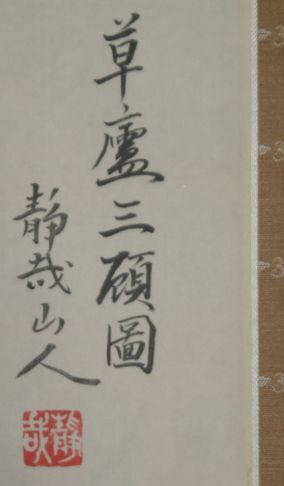 草廬三顧圖
靜哉山人
靜哉